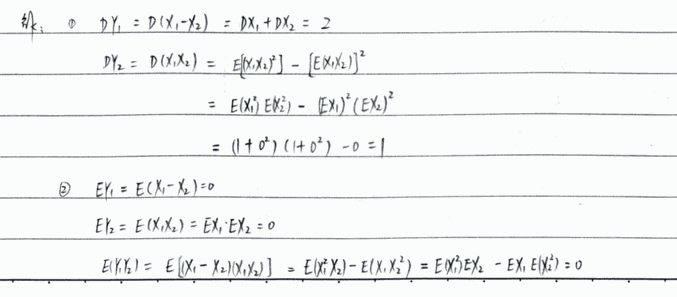 解: ① DY₁ = D(X₁-X₂) = DX₁ + DX₂ = 2
DY₂ = D(X₁X₂) = E[(X₁X₂)²] - [E(X₁X₂)]²
= E(X₁²) E(X₂²) - (EX₁)² (EX₂)²
= (1+0²) (1+0²) - 0 = 1
② EY₁ = E(X₁-X₂) = 0
EY₂ = E(X₁X₂) = EX₁·EX₂ = 0
E(Y₁Y₂) = E[(X₁-X₂)(X₁X₂)] = E(X₁²X₂) - E(X₁X₂²) = E(X₁²)EX₂ - EX₁E(X₂²) = 0